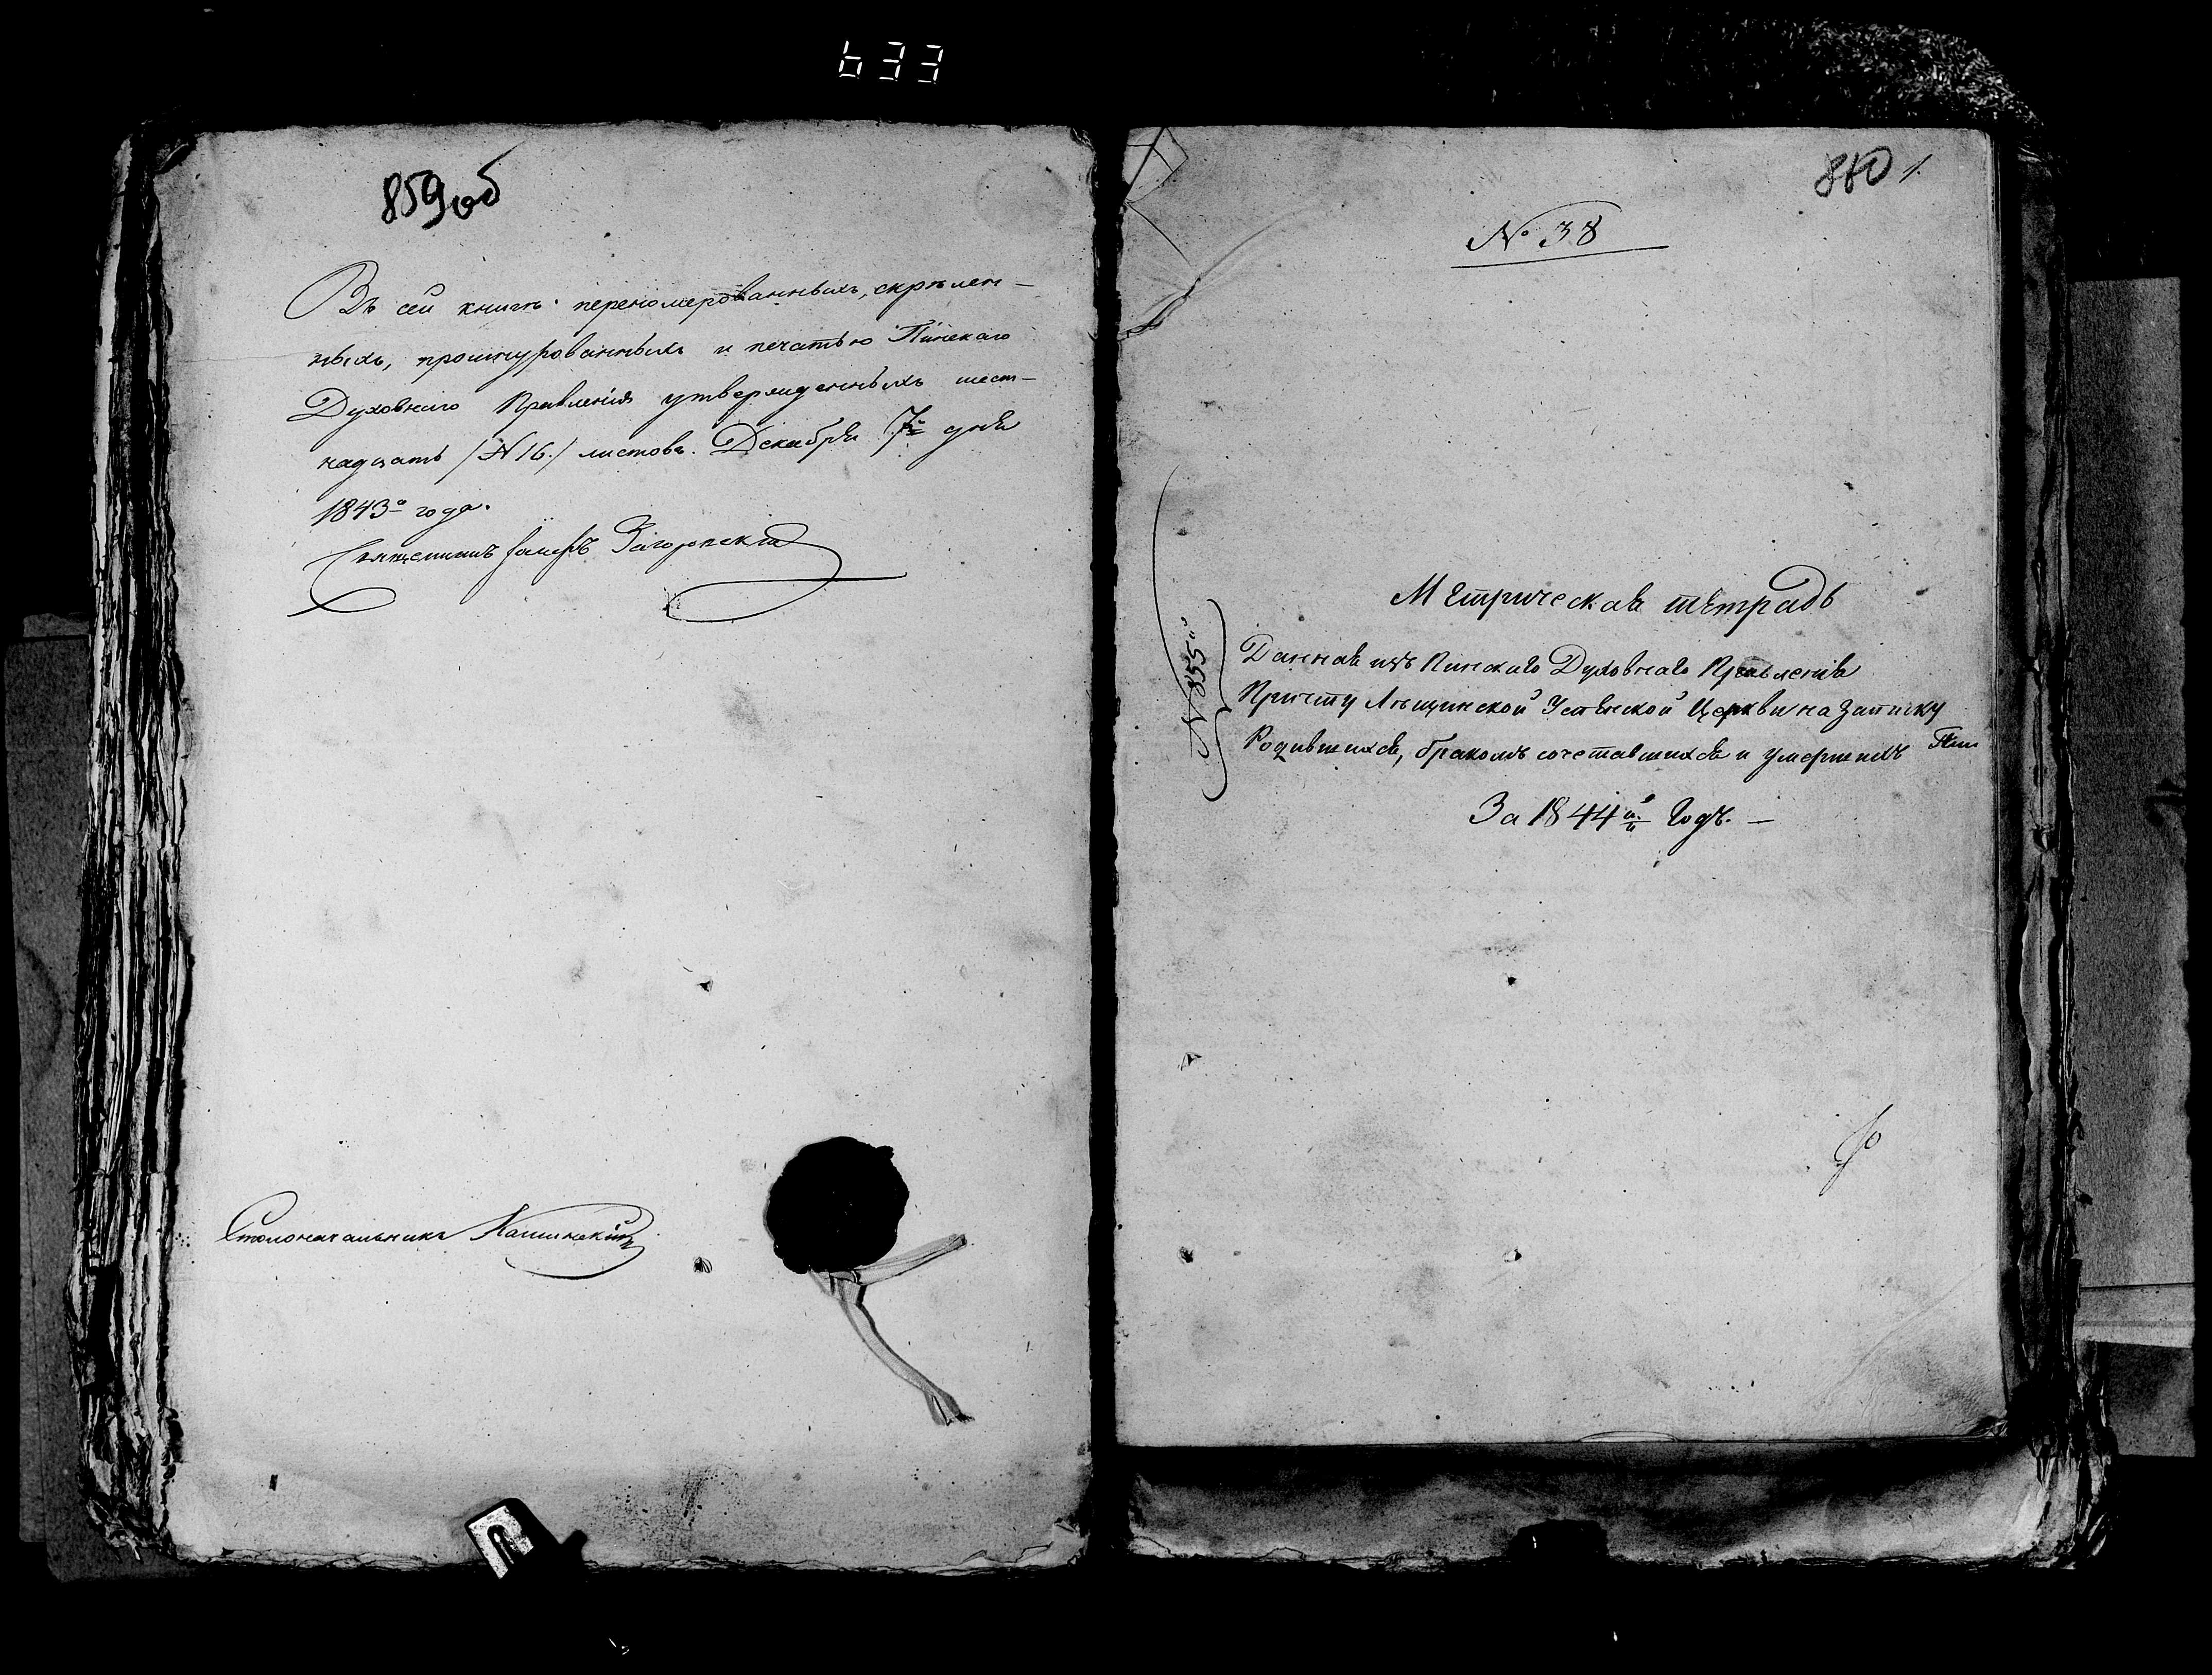 633
859об
Въ сей книгѣ переномерованныхъ, скрѣплен-
ныхъ, прошнурованныхъ и печатью Пинскаго
Духовнаго Правленія утвержденныхъ шест-
надцать /N 16./ листовъ. Декабря 7го дня
1843го года.
Священникъ Загоровскій
Столоначальникъ
860 1.
№ 38
N 855й
Метрическая тѣтрадь
Данная изъ Пинскаго Духовнаго Правленія
Причту Лыщинской Успенской Церкви на Записку
Родившихся, бракомъ сочетавшихся и умершихъ
За 1844й Годъ. —